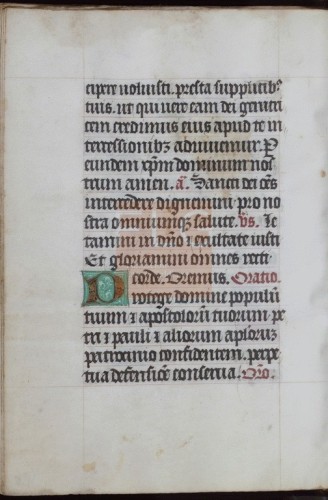 cipere uoluisti. presta supplicib⁹
tuis. ut qui uere eam dei genitri
cem credimus eius apud te in
tercessionibꝫ adiuuemur. P
eundem xp̄m dominum nos
trum amen. a. Sancti dei oēs
intercedere dignemini pro no
stra omniumqꝫ salute. vs. le
tamini in dn̄o ⁊ exultate iusti
Et gloriamini omnes recti
corde. Oremus. Oratio.
Protege domine populū
tuum ⁊ apostolorū tuorum pe
tri ⁊ pauli ⁊ aliorum aploruꝫ
patrocinio confidentem. perpe
tua defensiōe conserua. Oro.